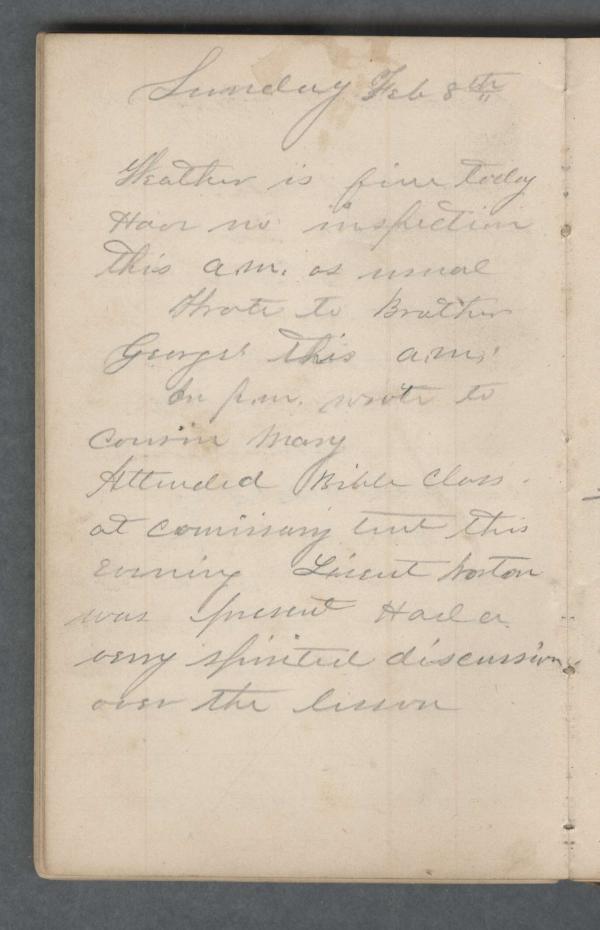 Sunday Feb 8th
Weather is fine today
no inspection
this a.m. as usual
Wrote to Brother
George this a.m.
In p.m. wrote to
Cousin Mary
Attended Bible Class
at comissary tent this
evening Lieut Norton
was present Had a
very spirited discussion
over the lesson